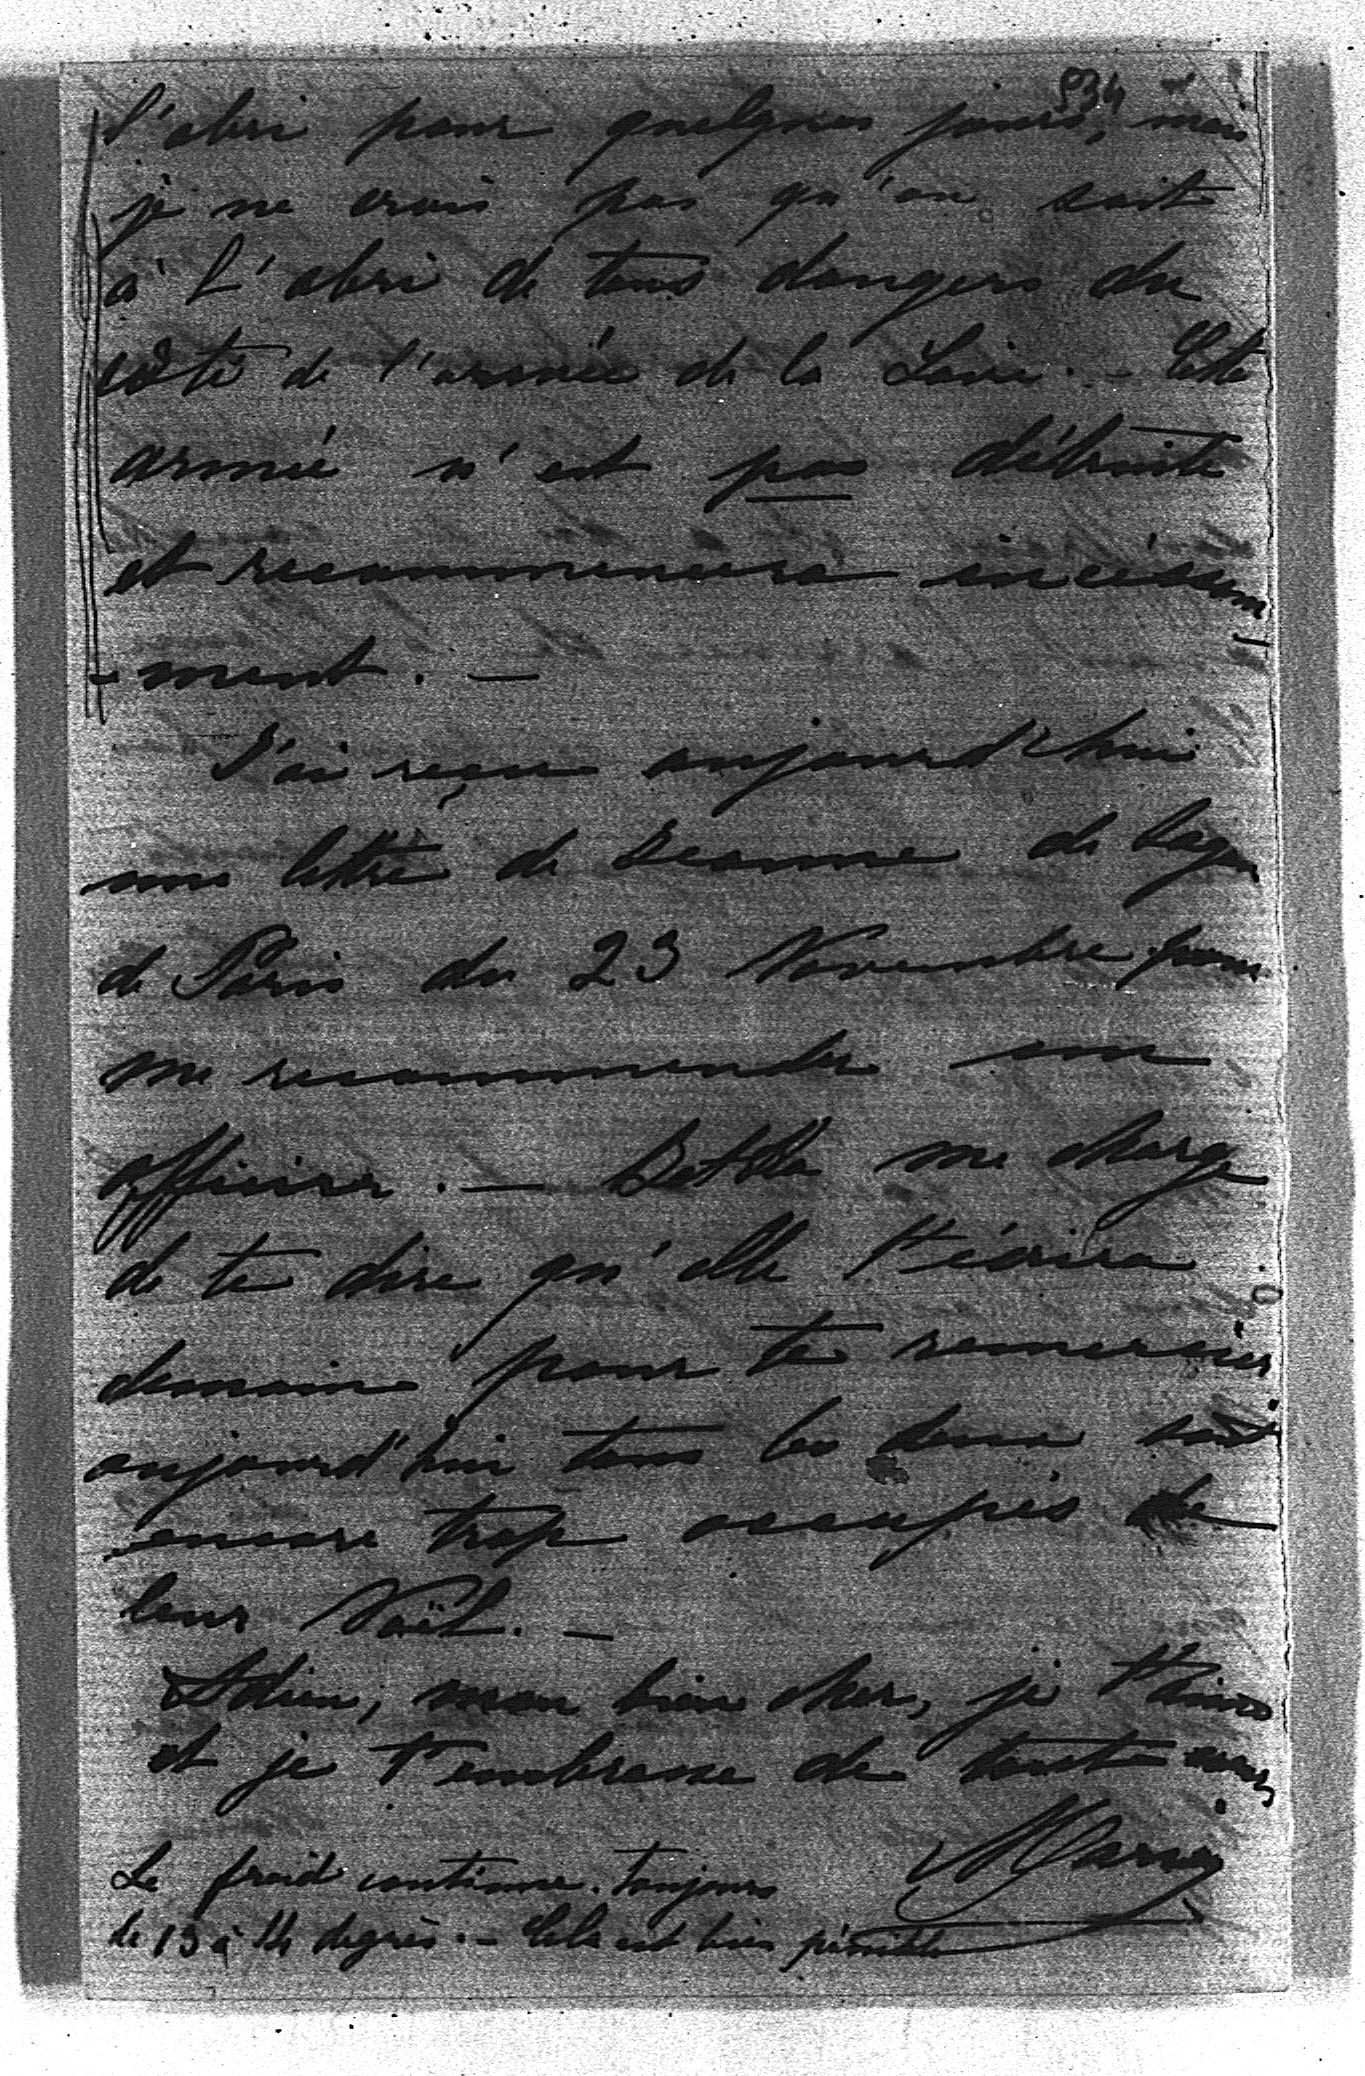 534
l'abri pour quelques jours, mais
je ne crois pas qu'on soit
à l'abri de tous dangers du
côté de l'armée de la Loire. - Cette
armée n'est pas détruite
et recommencera incessam
- ment. -
J'ai reçue aujourd'hui
une lettre de Jeanne de
de Paris du 23 Novembre pour
me recommender un
officier. - me charge
de te dire qu'elle t'écrira
demain pour te remercier
aujourd'hui tous les deux sont
encore trop occupés de
leur Noël. -
Adieu, mon bien cher, je t'aime
et je t'embrasse de tout coeur
Marie
Le froid continue toujours
de 13 à 14 degrés. - Cela est bien pénible